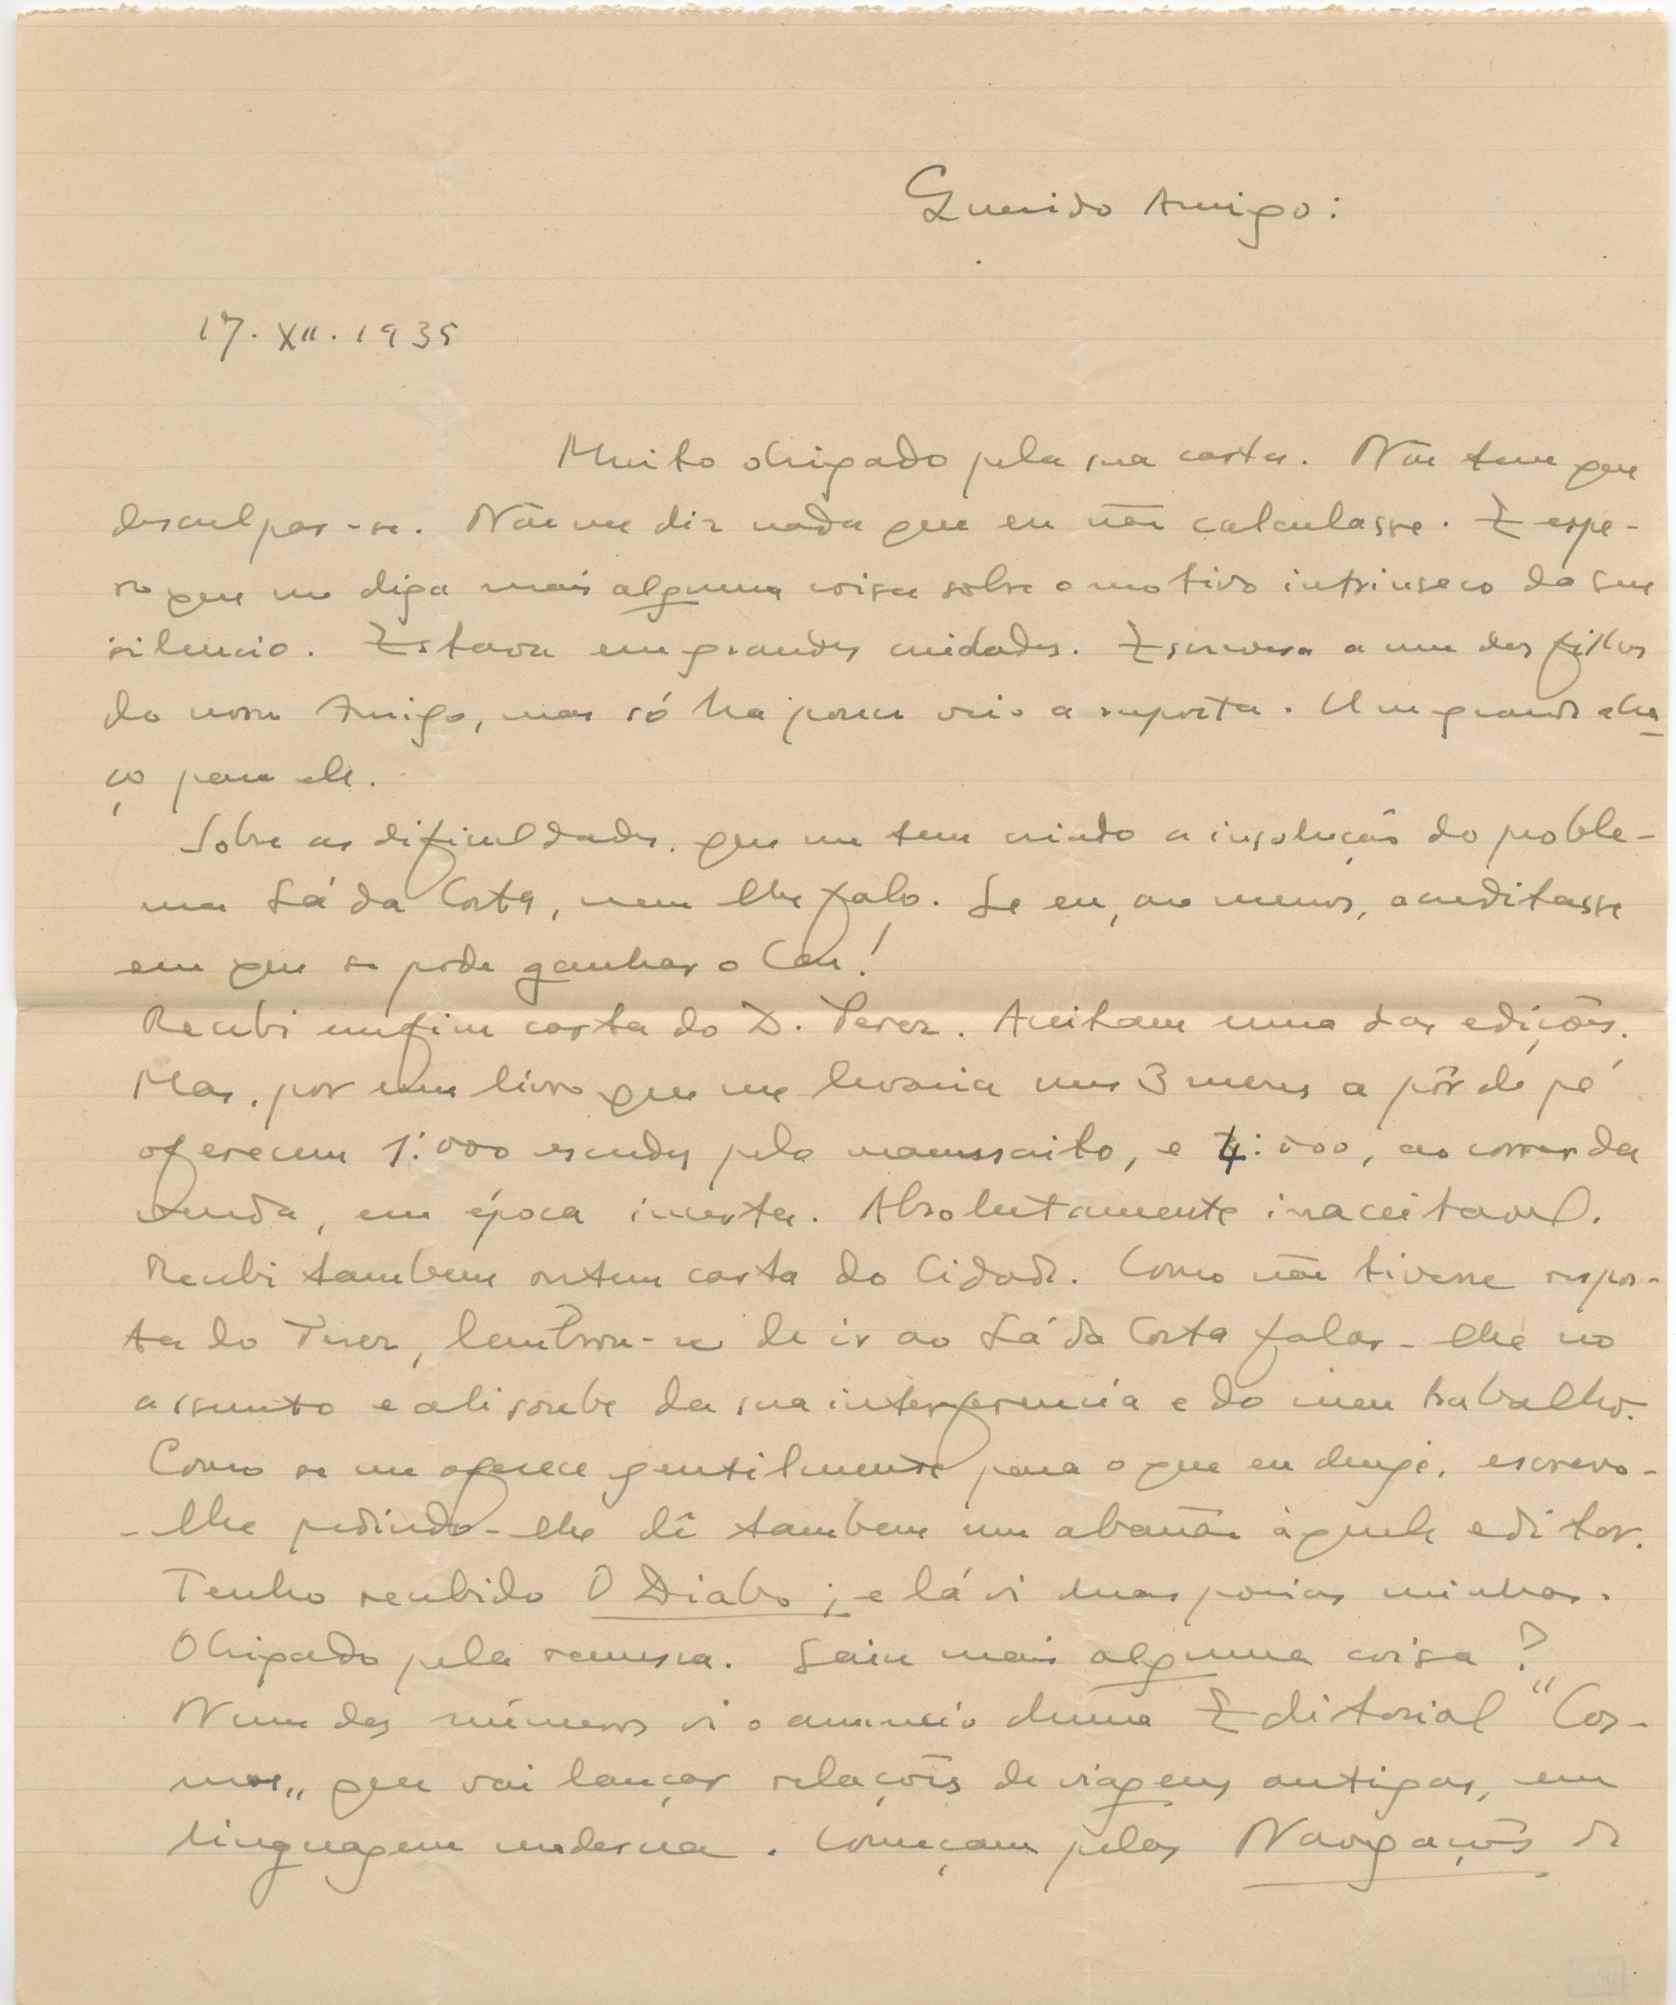 Querido Amigo:
17.XII.1935
Muito obrigado pela sua carta. Não tem que
desculpar-se. Não me diz nada que eu não calculasse. E espe-
ro que me diga mais alguma coisa sobre o motivo intrinseco do seu
silencio. Estava em grandes cuidados. Escrevera a um dos filhos
do nosso Amigo, mas só ha pouco veio a resposta. Um grande abra
ço para ele.
Sobre as dificuldades que me tem criado a insolução do proble-
ma Sá da Costa, nem lhe falo. Se eu, ao menos, acreditasse
em que se pode ganhar o Ceu!
Recebi enfim carta do D. Perez. Aceitam uma das edições.
Mas, por um livro que me levaria uns 3 meses a pôr de pé
oferecem 1:000 escudos pelo manuscrito, e 4:000, ao correr da
venda, em época incerta. Absolutamente inaceitavel.
Recebi tambem ontem carta do Cidade. Como não tivesse respos-
ta do Perez, lembrou-se de ir ao Sá da Costa falar-lhe no
assunto e ali soube da sua interferencia e do meu trabalho.
Como se me oferece gentilmente para o que eu deseje, escrevo-
-lhe pedindo-lhe dê tambem um abanão àquele editor.
Tenho recebido O Diabo; e lá vi duas poesias minhas.
Obrigado pela remessa. Saiu mais alguma coisa?
Num dos números vi o anuncio duma Editorial "Cos-
mos" que vai lançar relações de viagens antigas, em
linguagem moderna. Começam pelas Navegações de